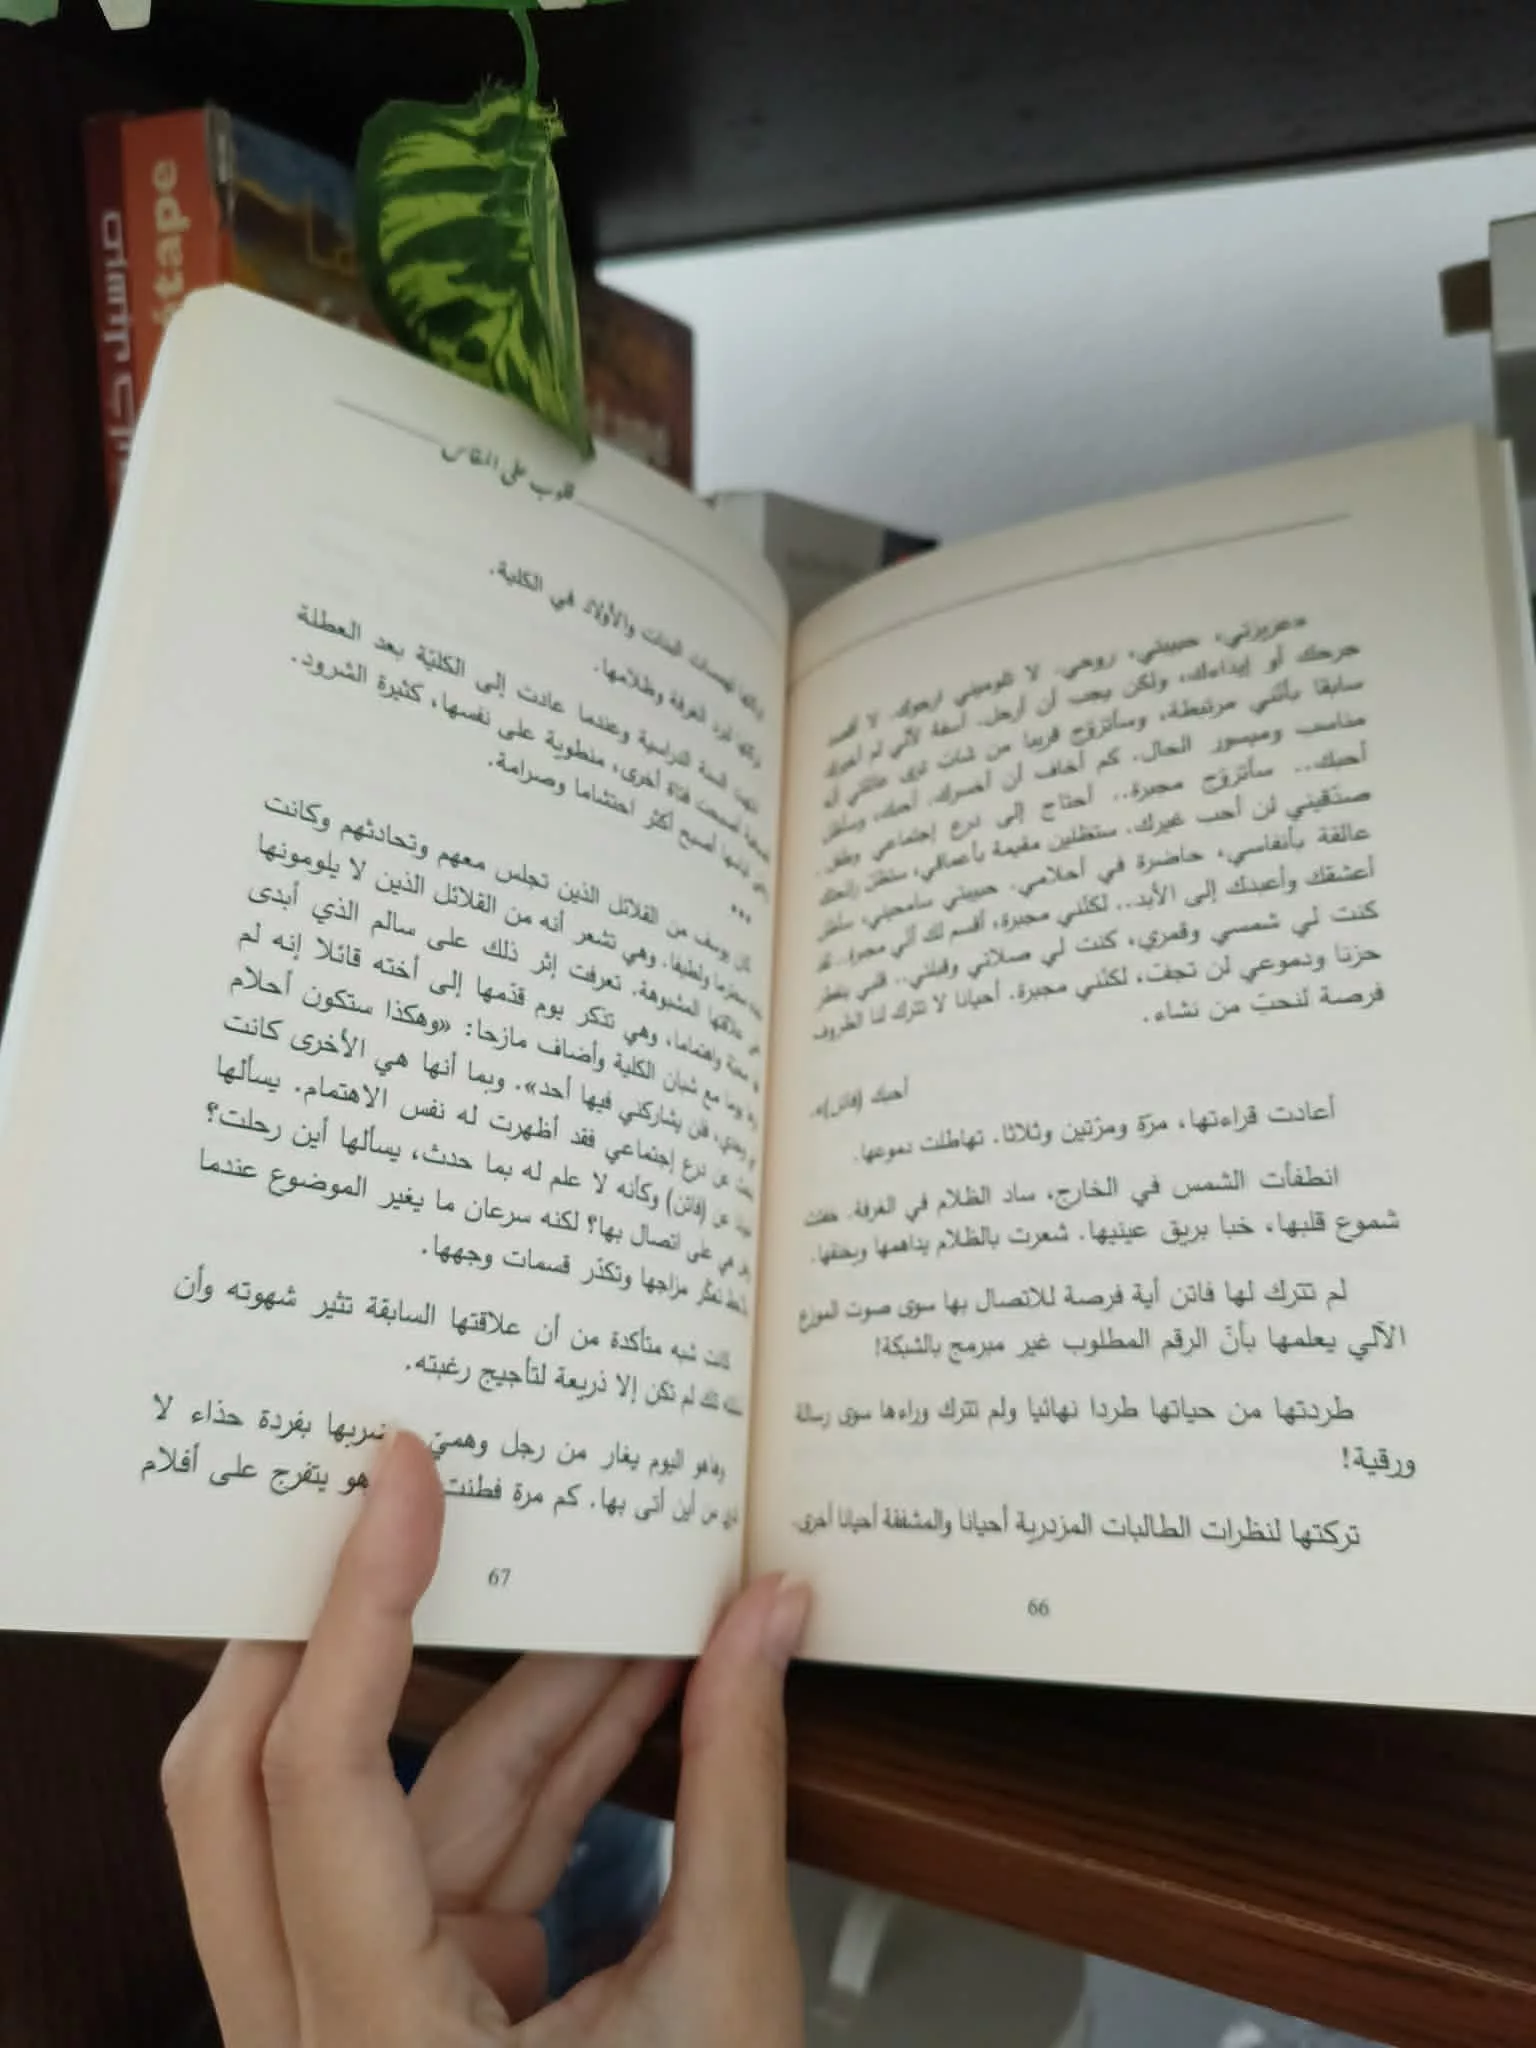 «عزيزتي، حبيبتي، روحي. لا تلوميني أرجوك. لا أقصد
جرحك أو إيذاءك، ولكن يجب أن أرحل. آسفة لأنّي لم أخبرك
سابقا بأنّني مرتبطة، وسأتزوّج قريبا من شاب ترى عائلتي أنه
مناسب وميسور الحال. كم أخاف أن أخسرك. أحبك، وسأظل
أحبك.. سأتزوّج مجبرة.. أحتاج إلى درع إجتماعي وطفل.
صدّقيني لن أحب غيرك. ستظلين مقيمة بأعماقي، ستظل رائحتك
عالقة بأنفاسي، حاضرة في أحلامي. حبيبتي سامحيني، سأظل
أعشقك وأعبدك إلى الأبد.. لكنّني مجبرة، أقسم لك أنّي مجبرة.. لقد
كنت لي شمسي وقمري، كنت لي صلاتي وقبلتي.. قلبي يتفطر
حزنا ودموعي لن تجفّ، لكنّني مجبرة. أحيانا لا تترك لنا الظروف
فرصة لنحبّ من نشاء.
أحبك (فاتن)».
أعادت قراءتها، مرّة ومرّتين وثلاثا. تهاطلت دموعها.
انطفأت الشمس في الخارج، ساد الظلام في الغرفة. خفتت
شموع قلبها، خبا بريق عينيها. شعرت بالظلام يداهمها ويخنقها.
لم تترك لها فاتن أية فرصة للاتصال بها سوى صوت الموزع
الآلي يعلمها بأنّ الرقم المطلوب غير مبرمج بالشبكة!
طردتها من حياتها طردا نهائيا ولم تترك وراءها سوى رسالة
ورقية!
تركتها لنظرات الطالبات المزدرية أحيانا والمشفقة أحيانا أخرى.
66
قلوب على المقاس
تركتها لهمسات البنات والأولاد في الكلية.
تركتها لبرد الغرفة وظلامها.
انتهت السنة الدراسية وعندما عادت إلى الكليّة بعد العطلة
الصيفية أصبحت فتاة أخرى، منطوية على نفسها، كثيرة الشرود.
حتى لباسها أصبح أكثر احتشاما وصرامة.
***
كان يوسف من القلائل الذين تجلس معهم وتحادثهم وكانت
تجده محترما ولطيفا. وهي تشعر أنه من القلائل الذين لا يلومونها
على علاقتها المشبوهة. تعرفت إثر ذلك على سالم الذي أبدى
محبّة واهتماما، وهي تتذكر يوم قدّمها إلى أخته قائلا إنه لم
يرها يوما مع شبان الكلية وأضاف مازحا: «وهكذا ستكون أحلام
لي وحدي، فلن يشاركني فيها أحد». وبما أنها هي الأخرى كانت
تبحث عن درع إجتماعي فقد أظهرت له نفس الاهتمام. يسألها
عن (فاتن) وكأنه لا علم له بما حدث، يسألها أين رحلت؟
وهل هي على اتصال بها؟ لكنه سرعان ما يغير الموضوع عندما
يلاحظ تعكّر مزاجها وتكدّر قسمات وجهها.
كانت شبه متأكدة من أن علاقتها السابقة تثير شهوته وأن
أسئلته تلك لم تكن إلا ذريعة لتأجيج رغبته.
وهاهو اليوم يغار من رجل وهميّ بفردة حذاء لا
من أين أتى بها. كم مرة فطنت هو يتفرج على أفلام
67
étape